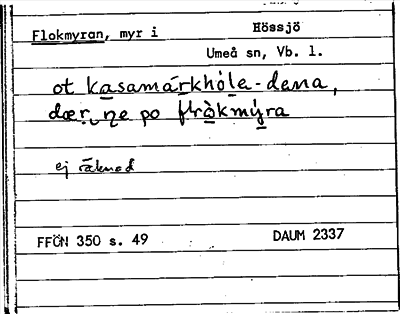 Flokmyran, myr i Hössjö
Umeå sn, Vb. l.
ot kasamárkhóle-dena,
dær ne po flòkmýra
ej räknad
FFÖN 350 s. 49 DAUM 2337